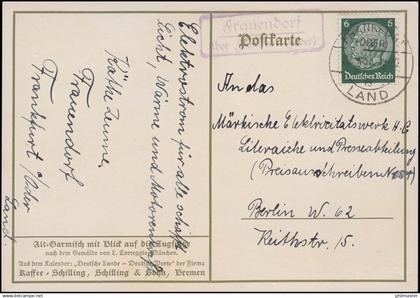 Frauendorf
über
Postkarte
6 6
Deutsches Reich
LAND
Elektrostrom für alle schafft
Licht, Wärme und Motorenkraft
Käthe Zeume.
Frauendorf
Frankfurt a/Oder
Land.
An das
Märkische Elektrizitätswerk A.G.
Literarische und Presseabteilung
(Preisausschreiben
Berlin W. 62
Keithstr. 15.
Alt-Garmisch mit Blick auf die Zugspitze
nach dem Gemälde von L. Correggio, München.
Aus dem Kalender: „Deutsche Lande — Deutsche Worte“ der Firma
Kaffee-Schilling, Schilling & Sohn, Bremen